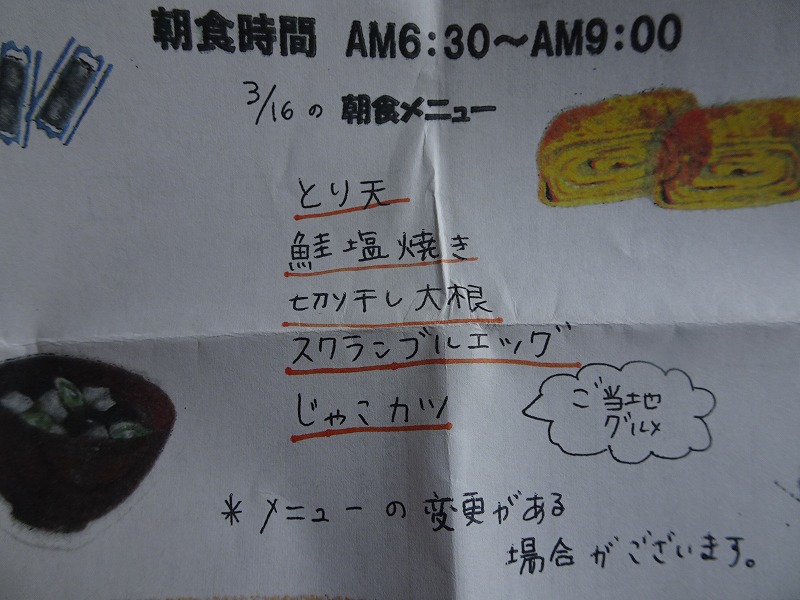 朝食時間 AM6:30～AM9:00
3/16の朝食メニュー
とり天
鮭塩焼き
切り干し大根
スクランブルエッグ
じゃこカツ
ご当地
グルメ
＊メニューの変更がある
場合がございます。